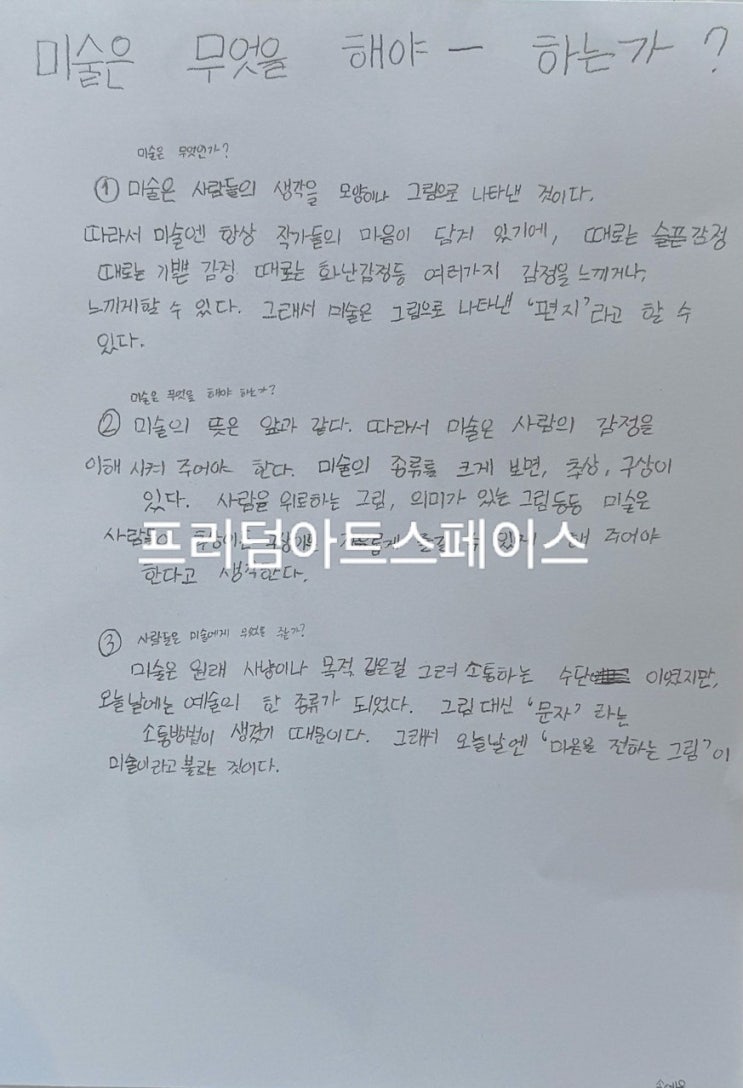 미술은 무엇을 해야 - 하는가?
미술은 무엇인가?
① 미술은 사람들의 생각을 모양이나 그림으로 나타낸 것이다.
따라서 미술엔 항상 작가들의 마음이 담겨 있기에, 때로는 슬픈감정
때로는 기쁜 감정 때로는 화난감정등 여러가지 감정을 느끼거나,
느끼게할 수 있다. 그래서 미술은 그림으로 나타낸 '편지'라고 할 수
있다.
미술은 무엇을 해야 하는가?
② 미술의 뜻은 앞과 같다. 따라서 미술은 사람의 감정을
이해 시켜 주어야 한다. 미술의 종류를 크게 보면, 추상, 구상이
있다. 사람을 위로하는 그림, 의미가 있는 그림등등 미술은
주어야
프리덤아트스페이스
한다고 생각한다.
③ 사람들은 미술에게 무엇을 줄까?
미술은 원래 사냥이나 목적 같은걸 그려 소통하는 수단 이였지만,
오늘날에는 예술의 한 종류가 되었다. 그림 대신 '문자' 라는
소통방법이 생겼기 때문이다. 그래서 오늘날엔 '마음을 전하는 그림'이
미술이라고 불리는 것이다.